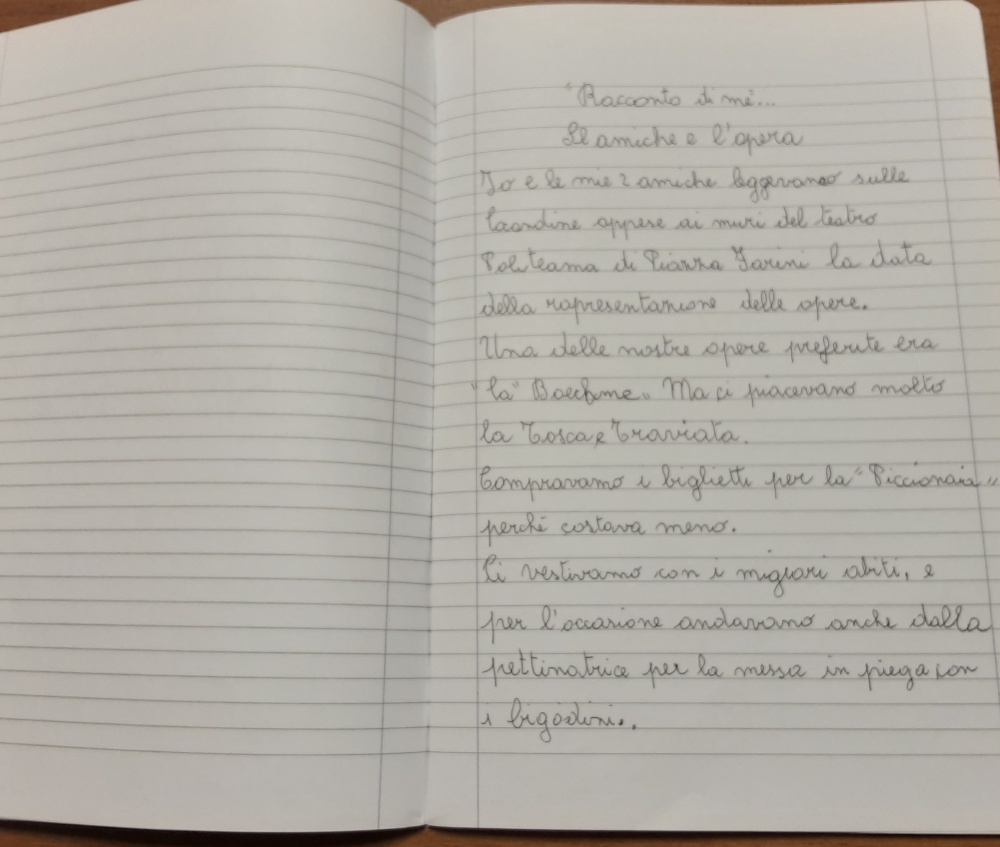 "Racconto di mé...
Le amiche e l'opera
Io e le mie 2 amiche leggevano sulle
locandine appese ai muri del teatro
Politeama di Piazza Farini la data
della rapresentazione delle opere.
Una delle nostre opere preferite era
"la" Boechème". Ma ci piacevano molto
la Tosca e Traviata.
Compravamo i biglietti per la "Piccionaia"
perché costava meno.
Ci vestivamo con i migliori abiti, e
per l'occasione andavano anche dalla
pettinatrice per la messa in piega con
i bigodini..